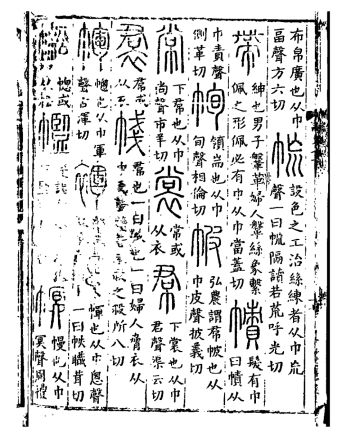 布帛廣也从巾
畐聲方六切
㡆
設色之工治絲練者从巾㠩
聲一曰㡆隔讀若荒呼光切
帶
紳也男子鞶革婦人鞶絲象繫
佩之形佩必有巾从巾當蓋切
幘
髮有巾
曰幘从
巾責聲
側革切
㡒
領耑也从巾
旬聲相倫切
帔
弘農謂帬帔也从
巾皮聲披義切
常
下帬也从巾
尚聲市羊切
裳
常或
从衣
帬
下裳也从巾
君聲渠云切
裠
帬或
从衣
帴
帬也一曰帗也一曰婦人脅衣从
巾戔聲讀若末殺之殺所八切
幝
幒也从巾軍
聲古渾切
幒
幝也从巾悤聲
一曰帙職茸切
㡓
幒或
从松
幎
幔也从巾
冥聲周禮